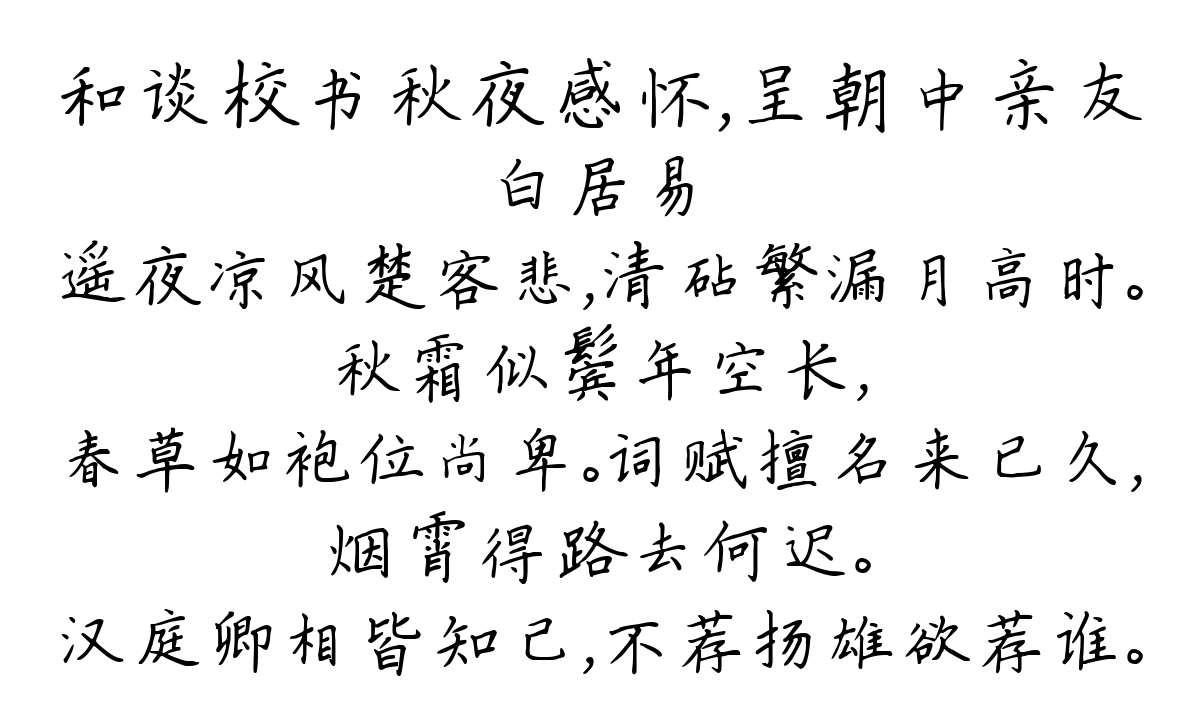 和谈校书秋夜感怀,呈朝中亲友
白居易
遥夜凉风楚客悲,清砧繁漏月高时。
秋霜似鬓年空长,
春草如袍位尚卑。词赋擅名来已久,
烟霄得路去何迟。
汉庭卿相皆知己,不荐扬雄欲荐谁。